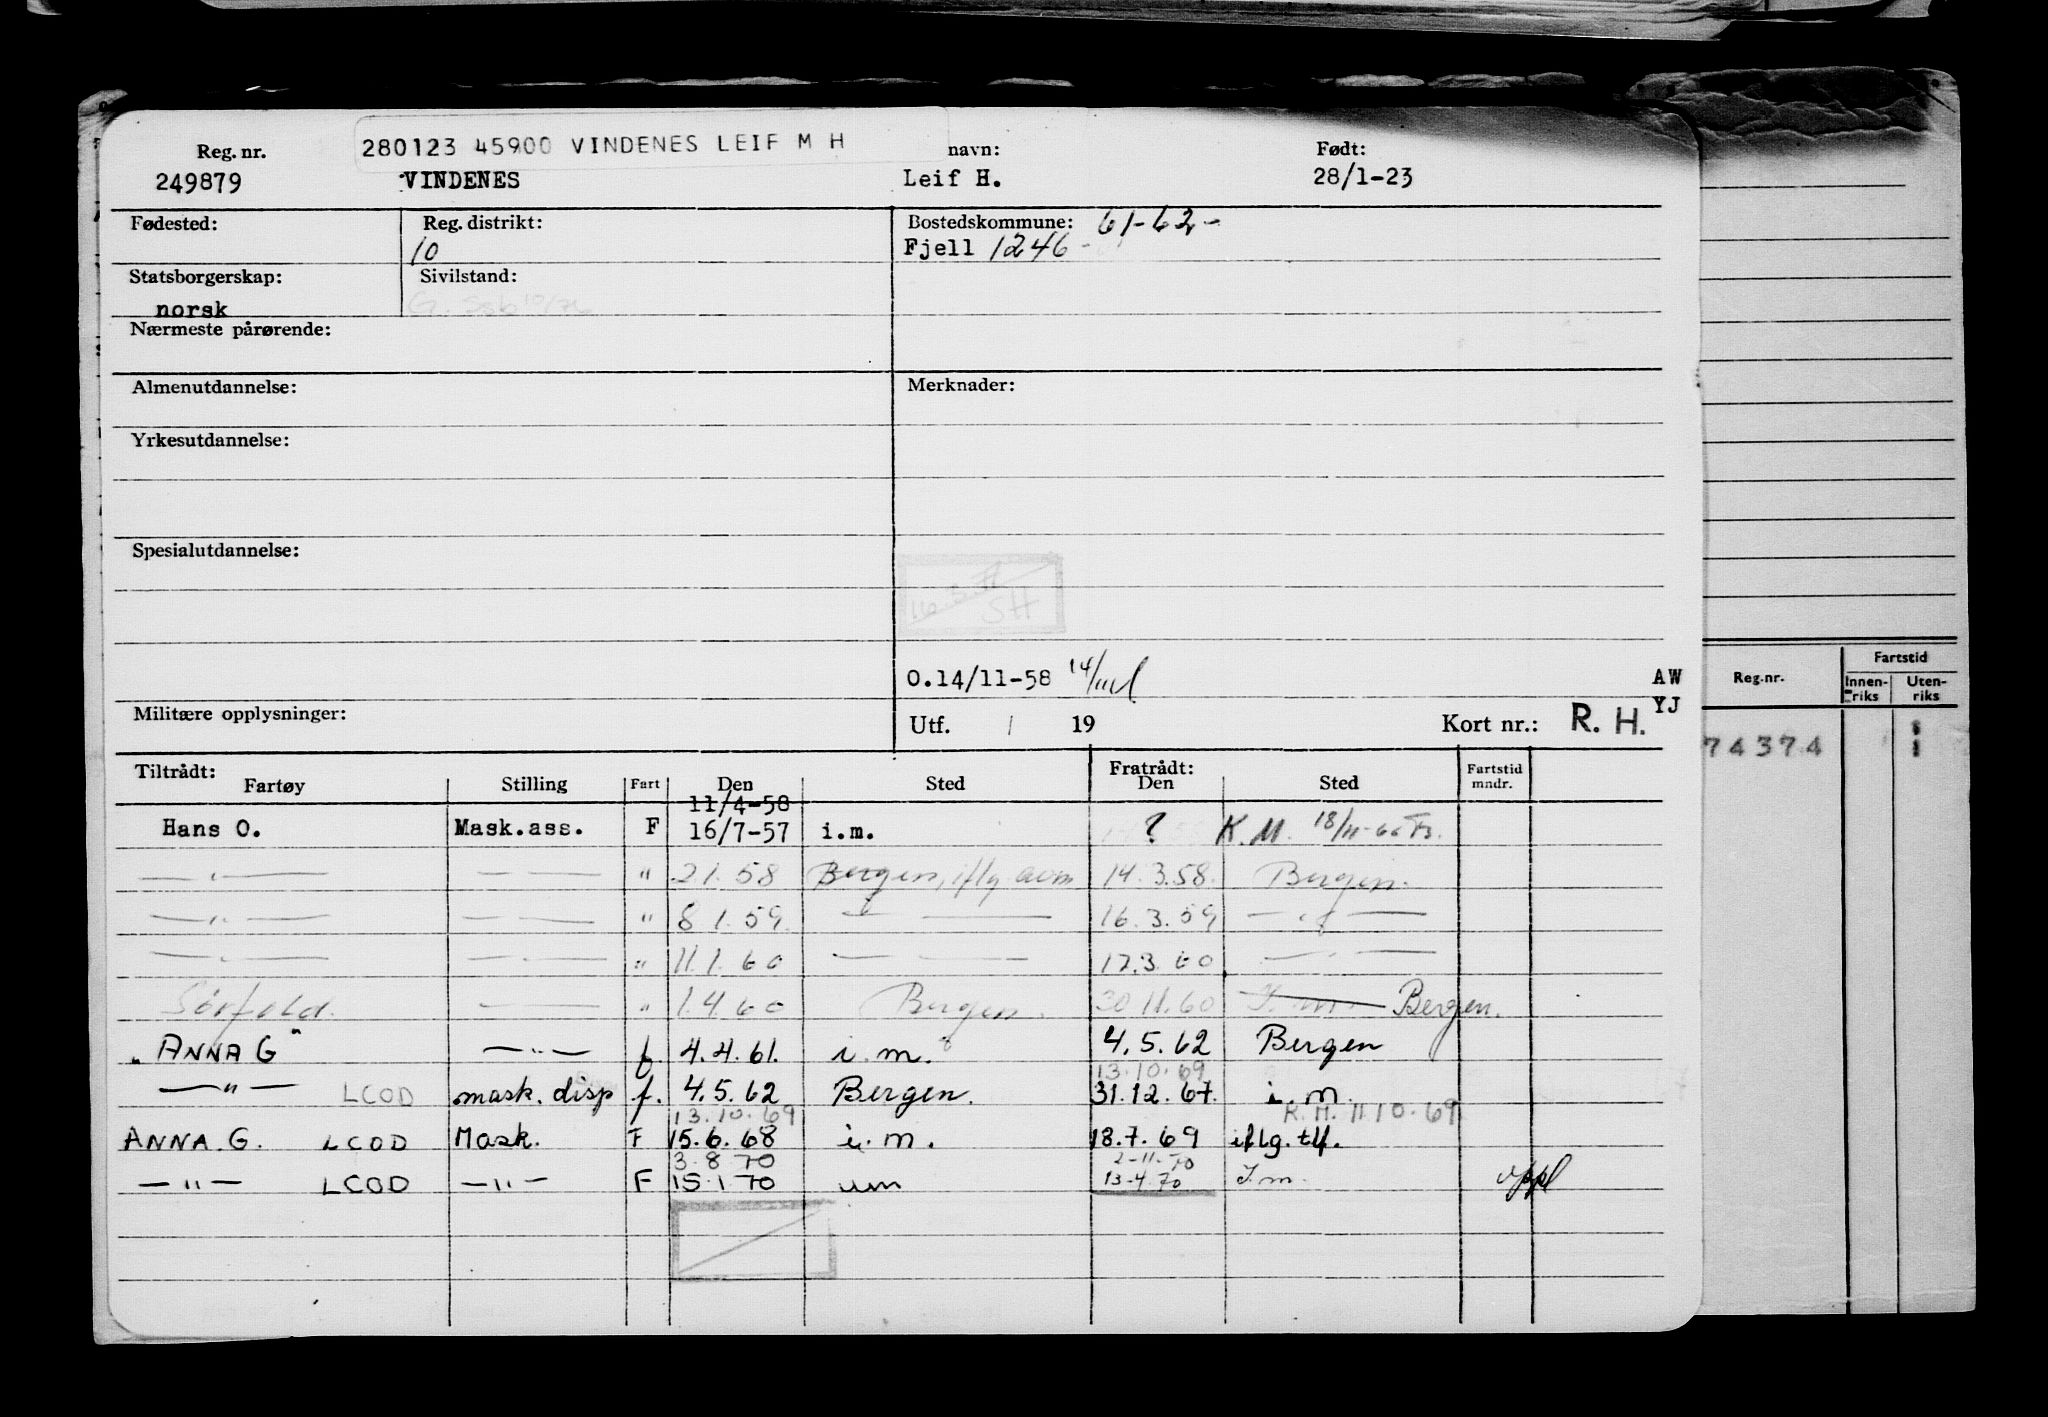 280123 45900 VINDENES LEIF M H
Reg. nr. navn: Født:
249879 VINDENES Leif H. 28/1-23
Fødested: Reg. distrikt: Bostedskommune: 61-62-
10 Fjell 1246-
Statsborgerskap: Sivilstand:
norsk G.
Nærmeste pårørende:
Almenutdannelse: Merknader:
Yrkesutdannelse:
Spesialutdannelse:
SH
O.14/11-58 AW
Militære opplysninger: YJ
Utf. / 19 Kort nr.: R. H.
Tiltrådt: Fratrådt: Fartstid
Fartøy Stilling Fart Den Sted Den Sted mndr.
11/4-58
Hans O. Mask.ass. F 16/7-57 i.m. ? K.M. 18/11-66
— " — — — " 2.1.58 Bergen, iflg 14.3.58. Bergen.
— " — — — " 8 1.59. — — 16.3.59 — " —
— " — — — " 11.1.60 — — 17.3.60 — " —
Sörfold. — — " 1.4.60 Bergen. 30.11.60 I.m. Bergen.
"ANNA G" — " — f. 4.4.61. i.m. 4.5.62 Bergen
13.10.69
— " — LCOD mask. disp f. 4.5.62 Bergen. 31.12.67. i.m.
13.10.69 K.M. 11.10.69
ANNA.G. LCOD Mask. F 15.6.68 i.m. 18.7.69 iflg. tlf.
3.8.70 2-11.70
— " — LCOD — " — F 15.1.70 im 13-4.70 I.m. oppl
Reg.nr. Fartstid
Innen-riks Uten-riks
74374